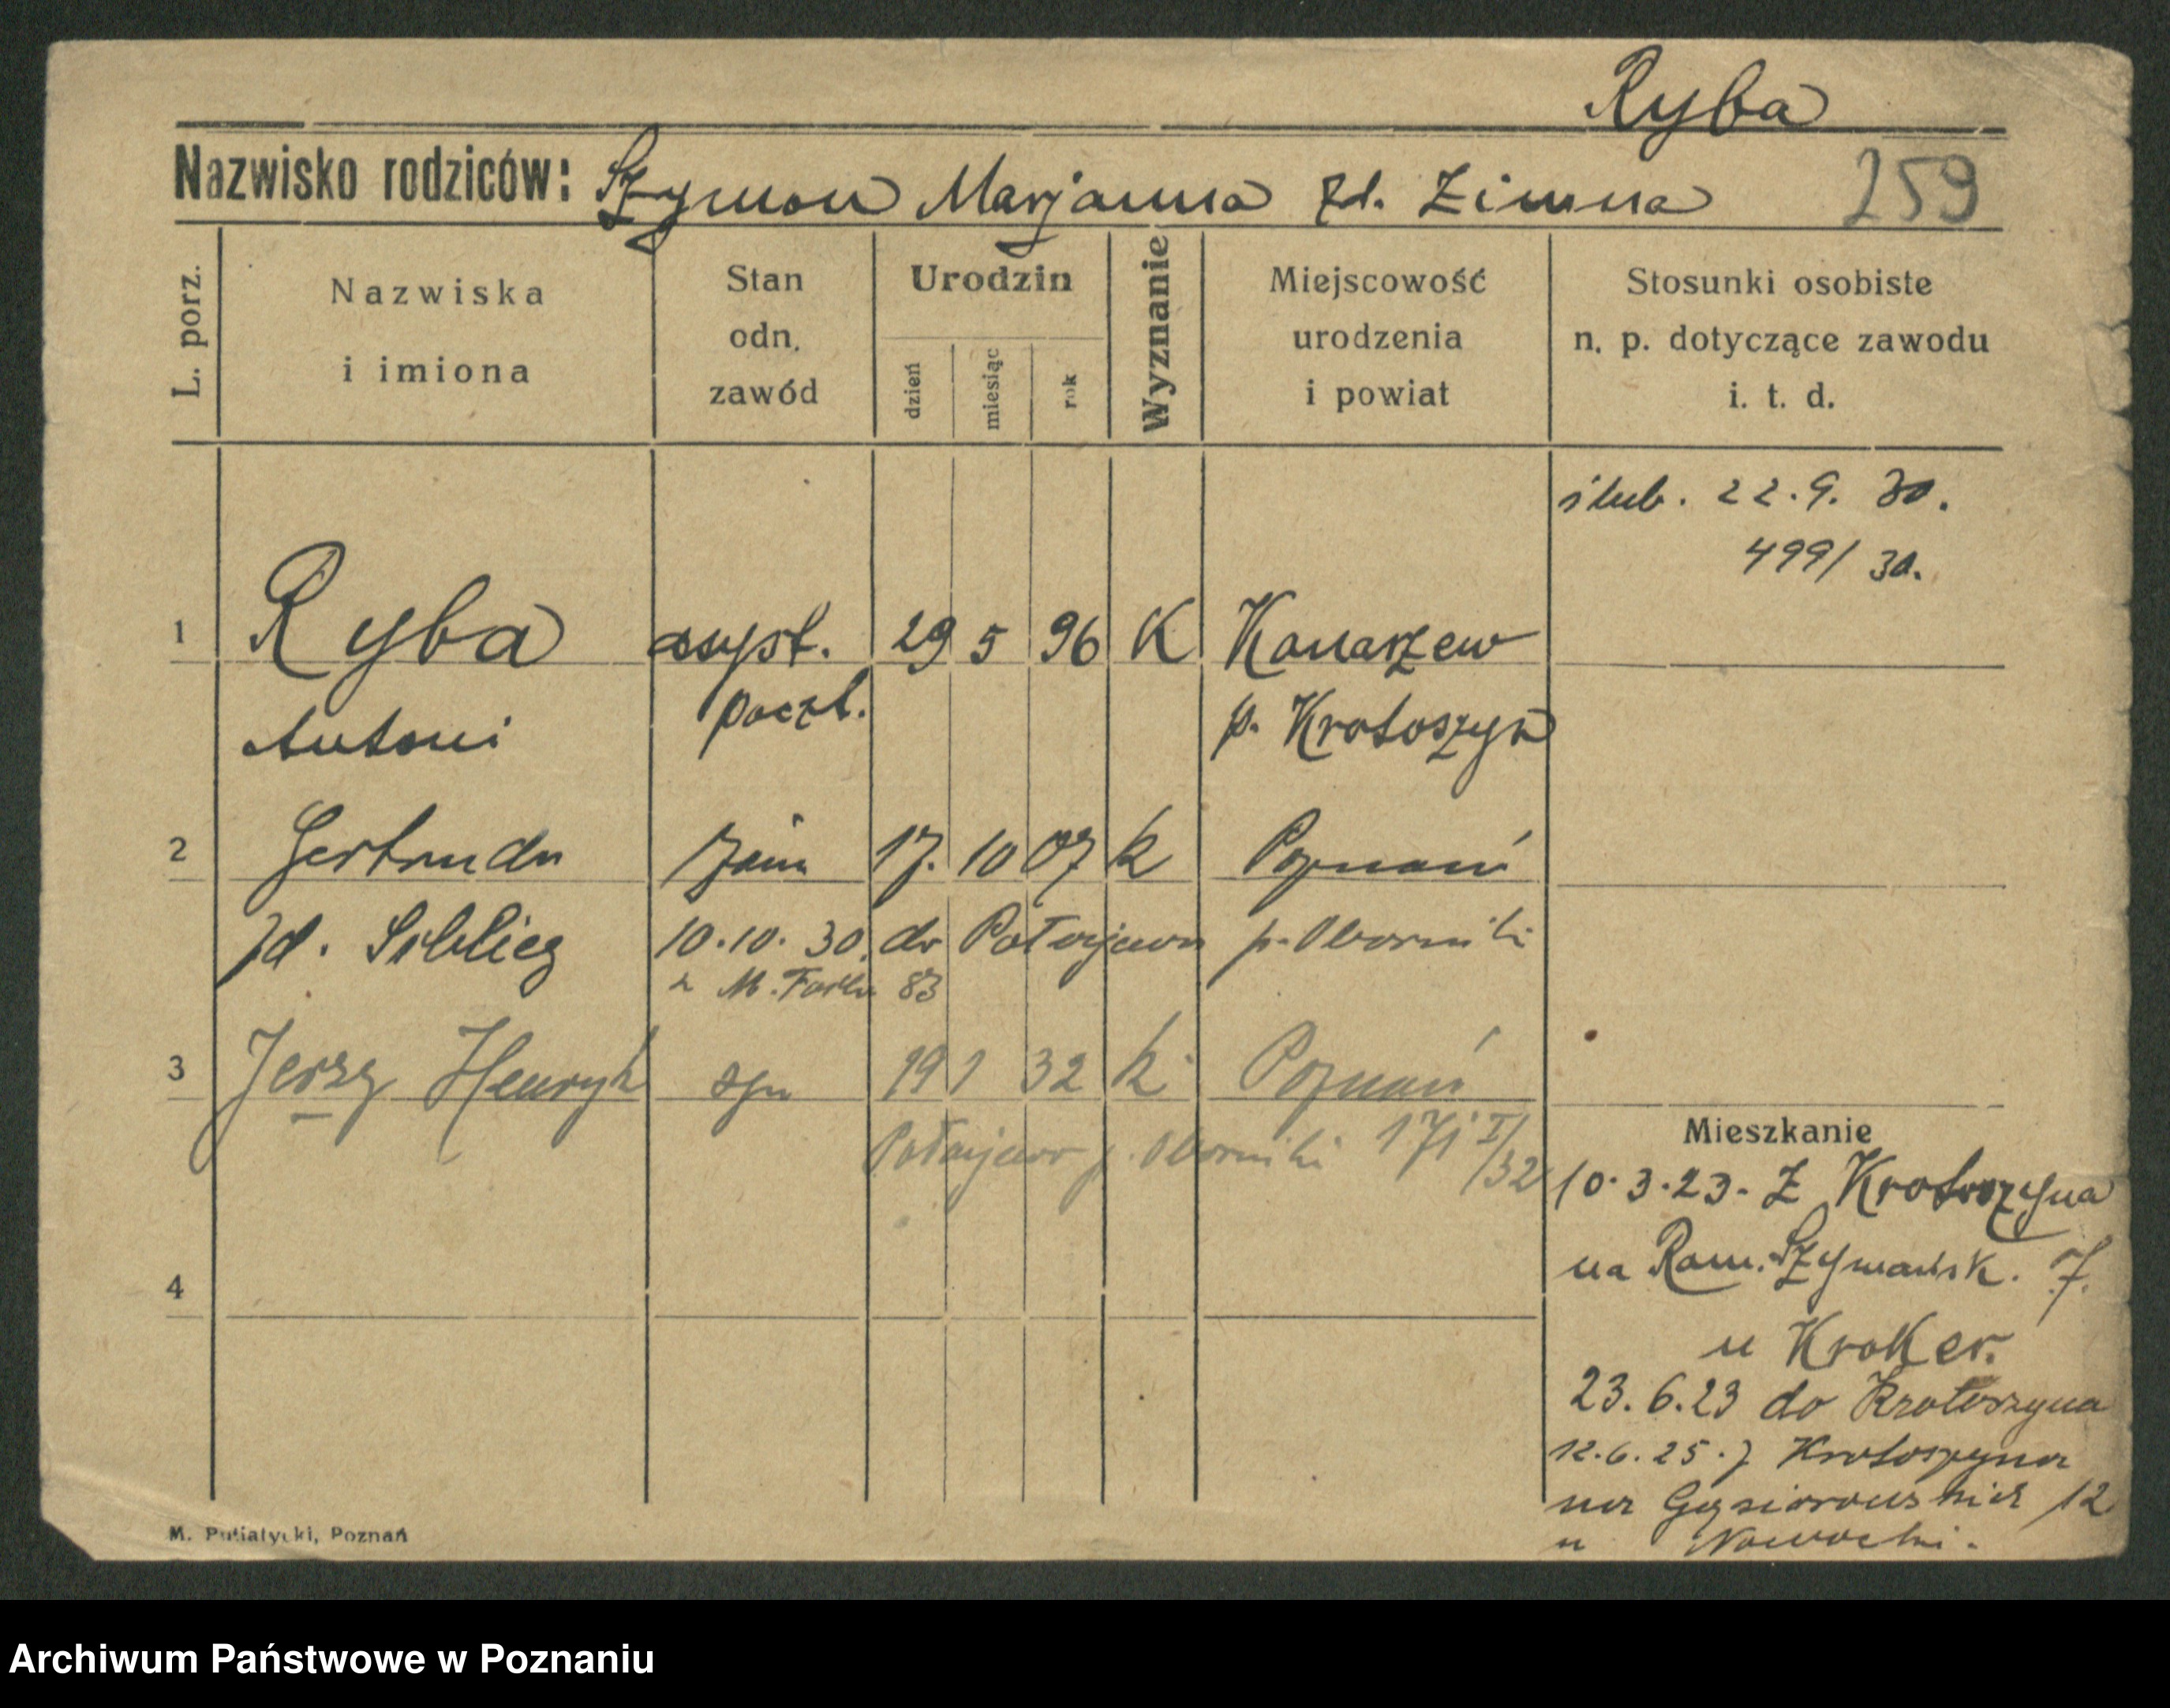 Ryba
Nazwisko rodziców: Szymon Marjanna zd. Zimna 259
L. porz.
Nazwiska i imiona
Stan odn. zawód
Urodzin
dzień miesiąc rok
Wyznanie
Miejscowość urodzenia i powiat
Stosunki osobiste n. p. dotyczące zawodu i. t. d.
ślub. 22.9. 30.
499/30.
1 Ryba asyst. 29 5 96 K Konarzew
Antoni poczt. p. Krotoszyn
2 Gertruda żona 17. 10 07 k Poznań
zd. 10.10.30. do Połajewa p. Oborniki
M. 83
3 Jerzy Henryk syn 19 1 32 k Poznań
Połajewo p. Oborniki
Mieszkanie
10.3.23. Z Krotoszyna
na Ram. Szymańsk. 7.
u Kroker.
23.6.23 do Krotoszyna
12.6.25. z Krotoszyna
na Gąsiorowskich 12
u
4
M. Putiatycki, Poznań
Archiwum Państwowe w Poznaniu